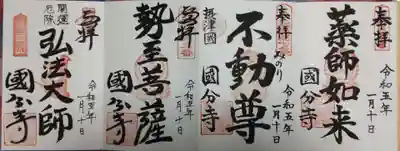 奉拝
薬師如来
國分寺
令和五年
一月十日
奉拝
みのり
摂津國
不動尊
國分寺
令和五年
一月十日
奉拝
勢至菩薩
國分寺
令和五年
一月十日
奉拝
開運
厄除
弘法大師
國分寺
令和五年
一月十日